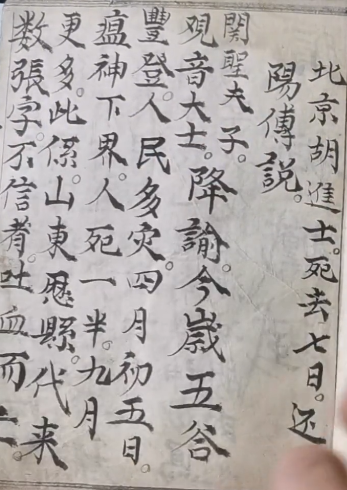 北京胡進士。死去七日。还
陽傳說。
関聖夫子。
观音大士。降諭。今歲五谷
豐登。人民多灾。四月初五日。
瘟神下界。人死一半。九月
更多。此係山東歷縣。代来
数張字。不信者。吐血而亡